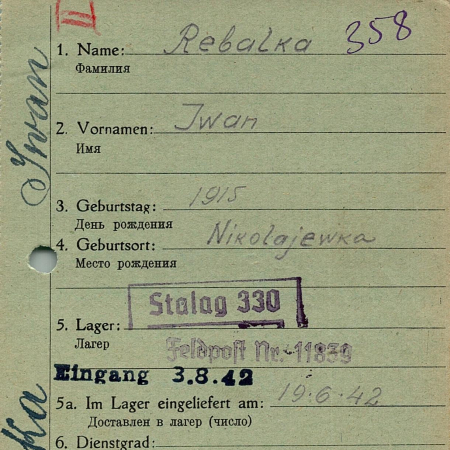 II
358
1. Name: Rebalka
Фамилия
2. Vornamen: Iwan
Имя
3. Geburtstag: 1915
День рождения
4. Geburtsort: Nikolajewka
Место рождения
Stalag 330
5. Lager:
Лагерь
Feldpost Nr. 11839
Eingang 3.8.42
5a. Im Lager eingeliefert am: 19.6.42
Доставлен в лагер (число)
6. Dienstgrad:
Iwan
ka